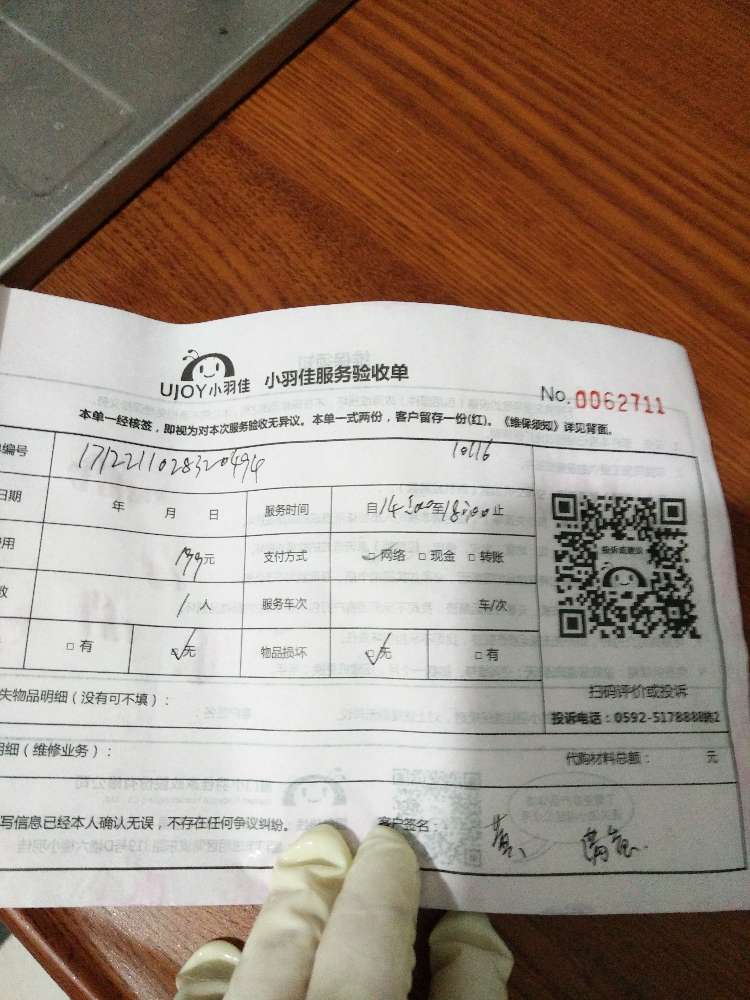 UJOY小羽佳 小羽佳服务验收单
No. 0062711
本单一经核签，即视为对本次服务验收无异议。本单一式两份，客户留存一份(红)。《维保须知》详见背面。
编号 1712211028320494 10116
日期 年 月 日 服务时间 自14:00至18:00止
费用 199元 支付方式 □ 网络 □ 现金 □ 转账
1人 服务车次 车/次
□ 有 □ 无 物品损坏 □ 无 □ 有
投诉或建议
扫码评价或投诉
失物品明细（没有可不填）：
投诉电话：0592-5178888转2
明细（维修业务）：
代购材料总额： 元
写信息已经本人确认无误，不存在任何争议纠纷。 客户签名：